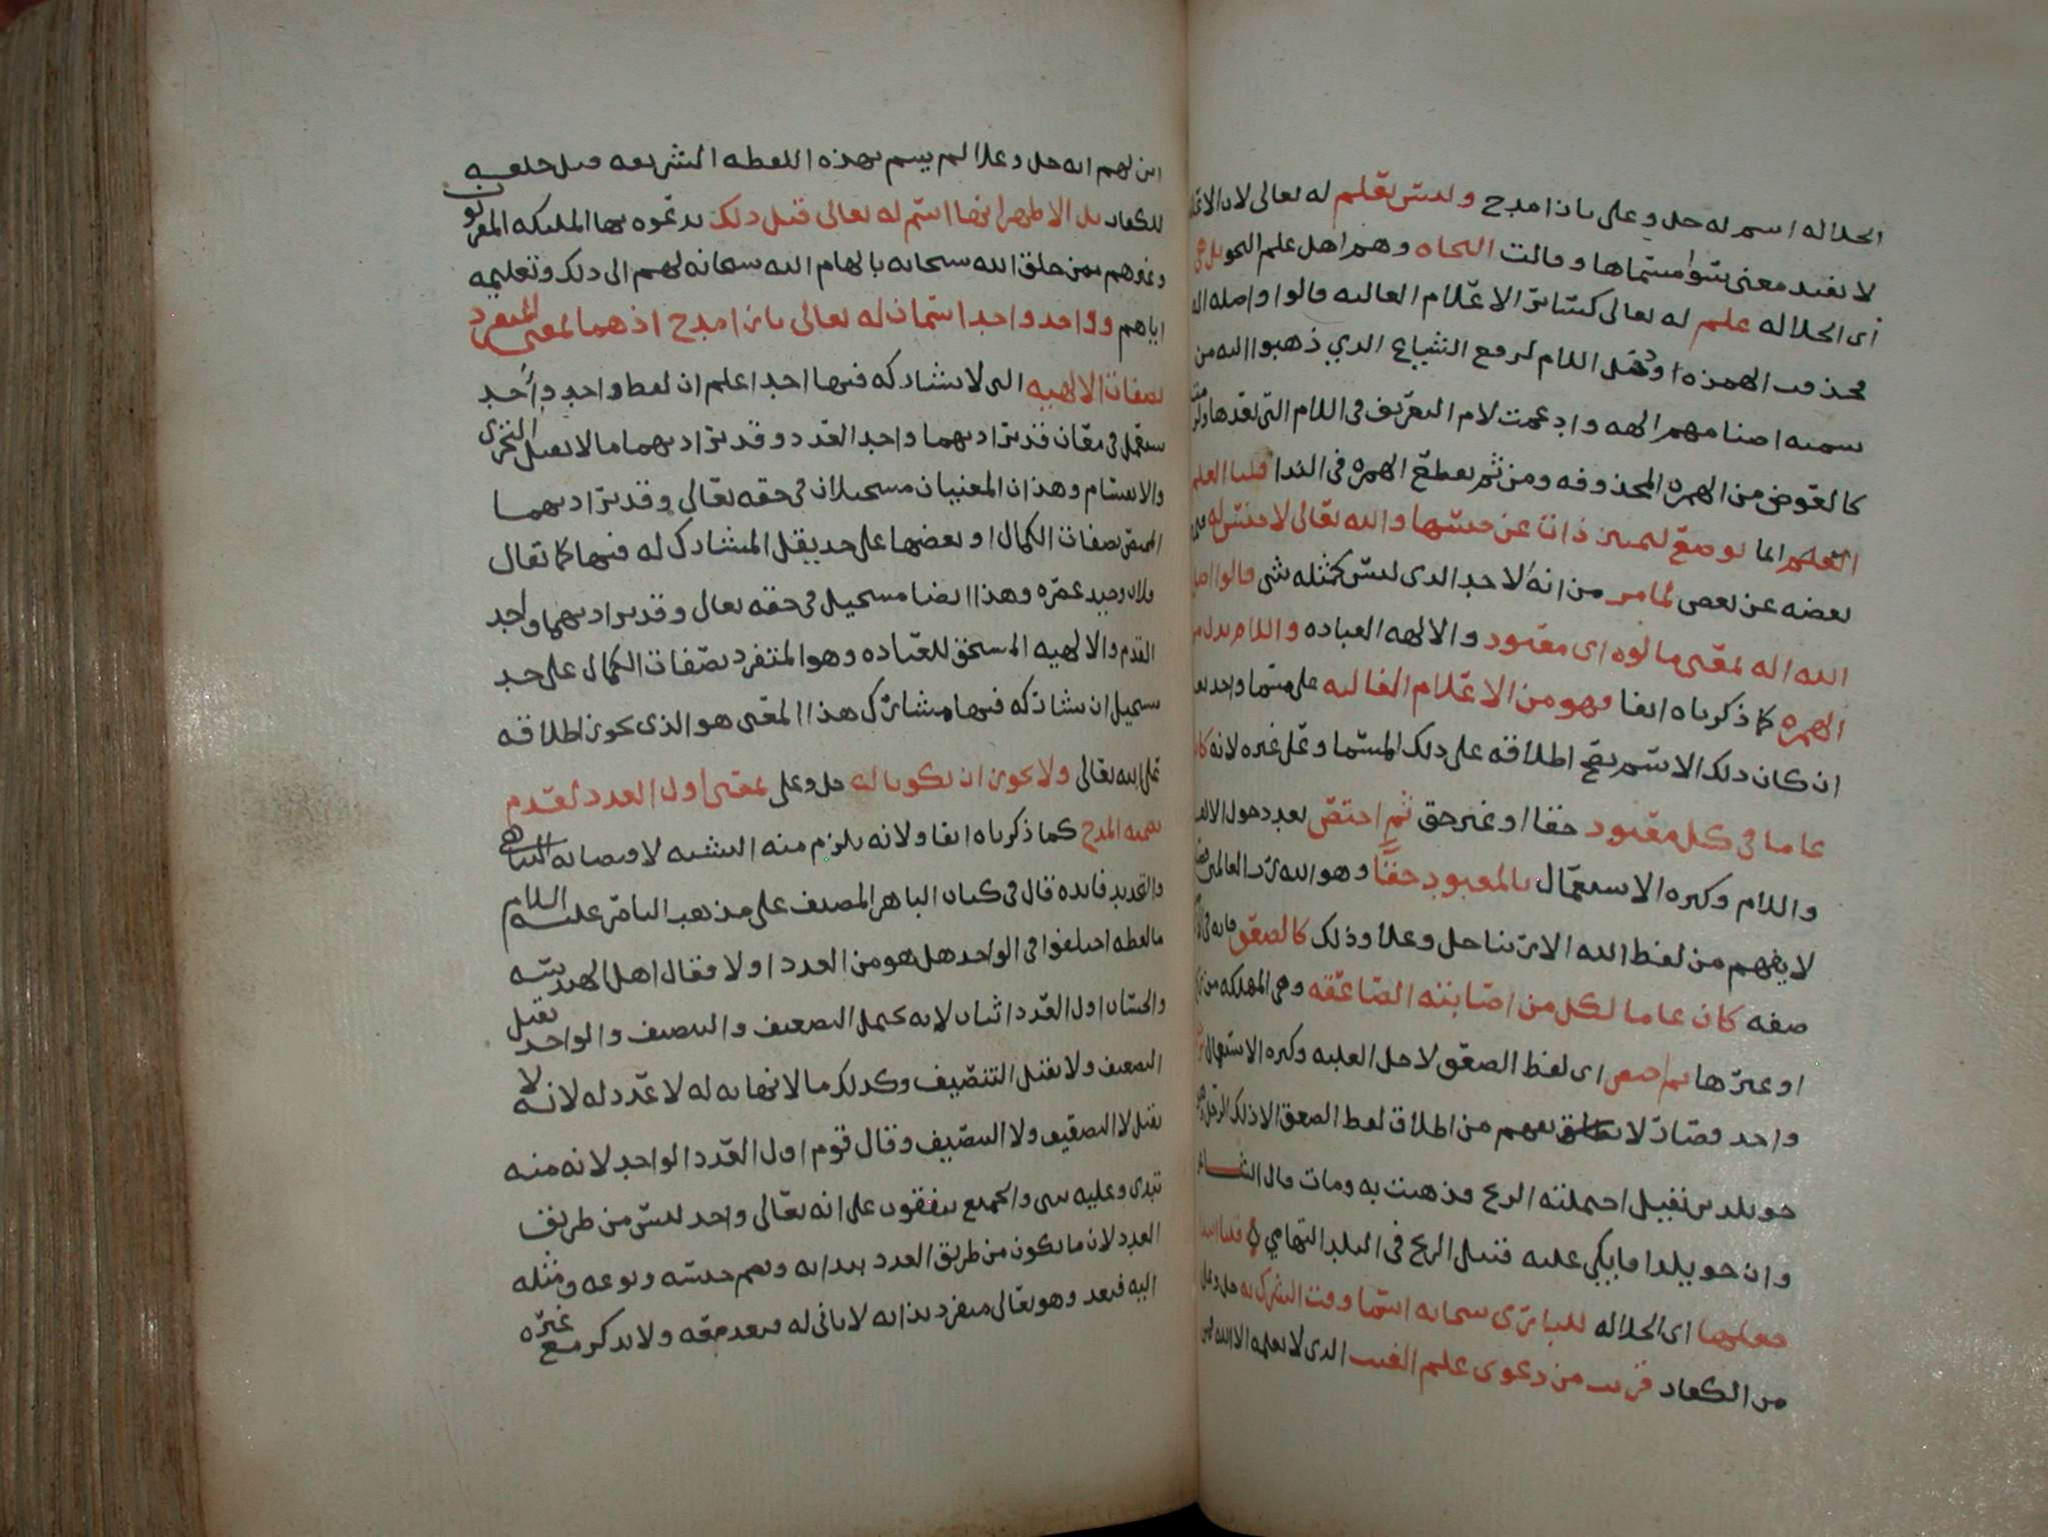 الجلاله اسم له جل وعلى بازا مدح وليس بعلم له تعالى لان الاعلام
لا تفيد معنى سوا مسماها وقالت النحاه وهم اهل علم النحو بل هي
اى الجلاله علم له تعالى كسائر الاعلام الغالبه قالوا واصله اله
محذوف الهمزه اوخل اللام لرفع الشياع الذي ذهبوا اليه من
تسميه اصنامهم الهه وادغمت لام التعريف في اللام التي بعدها
كالعوض من الهمزه المحذوفه ومن ثم بقطع الهمزه في الندا قلنا العلم
العلم انما يوضع لتميز ذات عن جنسها والله تعالى لا جنس له
بعضه عن بعض لما مر من انه لاحد الذي ليس كمثله شى قالوا اصل
الله اله بمعنى مالوه اى معبود والالهه العباده واللام بدل من
الهمزه كما ذكرناه انفا وهو من الاعلام الغالبه على مسما واحد
ان كان ذلك الاسم يصح اطلاقه على ذلك المسما وعلى غيره لانه كان
عاما في كل معبود حقا او غير حق ثم اختص بعد دخول الالف
واللام وكثره الاستعمال بالمعبود حقا وهو الله رب العالمين
لا يفهم من لفظ الله الا ربنا جل وعلا وذلك كالصعق فانه في
صفه كان عاما لكل من اصابته الصاعقه وهي المهلكه من
او غيرها ثم اختص اى لفظ الصعق لاجل الغلبه وكثره الاستعمال
واحد فصار لا يفهم من اطلاق لفظ الصعق الا ذلك الرجل
خويلد بن نفيل احتملته الريح فذهبت به ومات قال الشاعر
وان خويلدا فابكي عليه قتيل الريح في البلد التهامي قلنا
جعلها اى الجلاله للبارى سبحانه اسما وقت الشرك به جل وعلى
من الكفار قرب من دعوى علم الغيب الذي لا يعلمه الا الله
اين لهم انه جل وعلا لم يسم بهذه اللفظه الشريفه قبل خلقه
للكفار بل الاظهر انها اسم له تعالى قبل ذلك يدعوه بها المليكه المقربون
وغيرهم ممن خلق الله سبحانه بالهام الله سبحانه لهم الى ذلك وتعليمه
اياهم وواحد واحد اسمان له تعالى بازا مدح اذ هما بمعنى المتفرد
بصفات الالهيه التى لا يشاركه فيها احد اعلم ان لفظ واحد واحد
يستعمل في معان قد يراد بهما واحد العدد وقد يراد بهما ما لا يقبل التجزى
والانقسام وهذان المعنيان مستحيلان في حقه تعالى وقد يراد بهما
المختص بصفات الكمال او بعضها على حد يقل المشارك له فيها كما يقال
فلان وحيد عصره وهذا ايضا مستحيل في حقه تعالى وقد يراد بهما واحد
القدم والالهيه المستحق للعباده وهو المتفرد بصفات الكمال على حد
يستحيل ان يشاركه فيها مشارك هذا المعنى هو الذى يجوز اطلاقه
على الله تعالى ولا يجوز ان يكونا له جل وعلى بمعنى اول العدد لعدم
تضمنه المدح كما ذكرناه انفا ولانه يلزم منه التشبيه لاقتضائه التناهى
والتحديد فائده قال في كتاب الباهر المصنف على مذهب الناصر عليه السلام
ما لفظه اختلفوا في الواحد هل هو من العدد اولا فقال اهل الهندسه
والحساب اول العدد اثنان لانه يحتمل التضعيف والتنصيف والواحد يقبل
التضعيف ولا يقبل التنصيف وكذلك ما لا نهايه له لا عدد له لانه لا
يقبل لا التضعيف ولا التنصيف وقال قوم اول العدد الواحد لانه منه
تبدى وعليه يبنى والجميع يتفقون على انه تعالى واحد ليس من طريق
العدد لان ما يكون من طريق العدد بدايه ويضم جنسه ونوعه ومثله
اليه فيعد وهو تعالى متفرد بذاته لا ثانى له فيعد معه ولا يذكر مع غيره